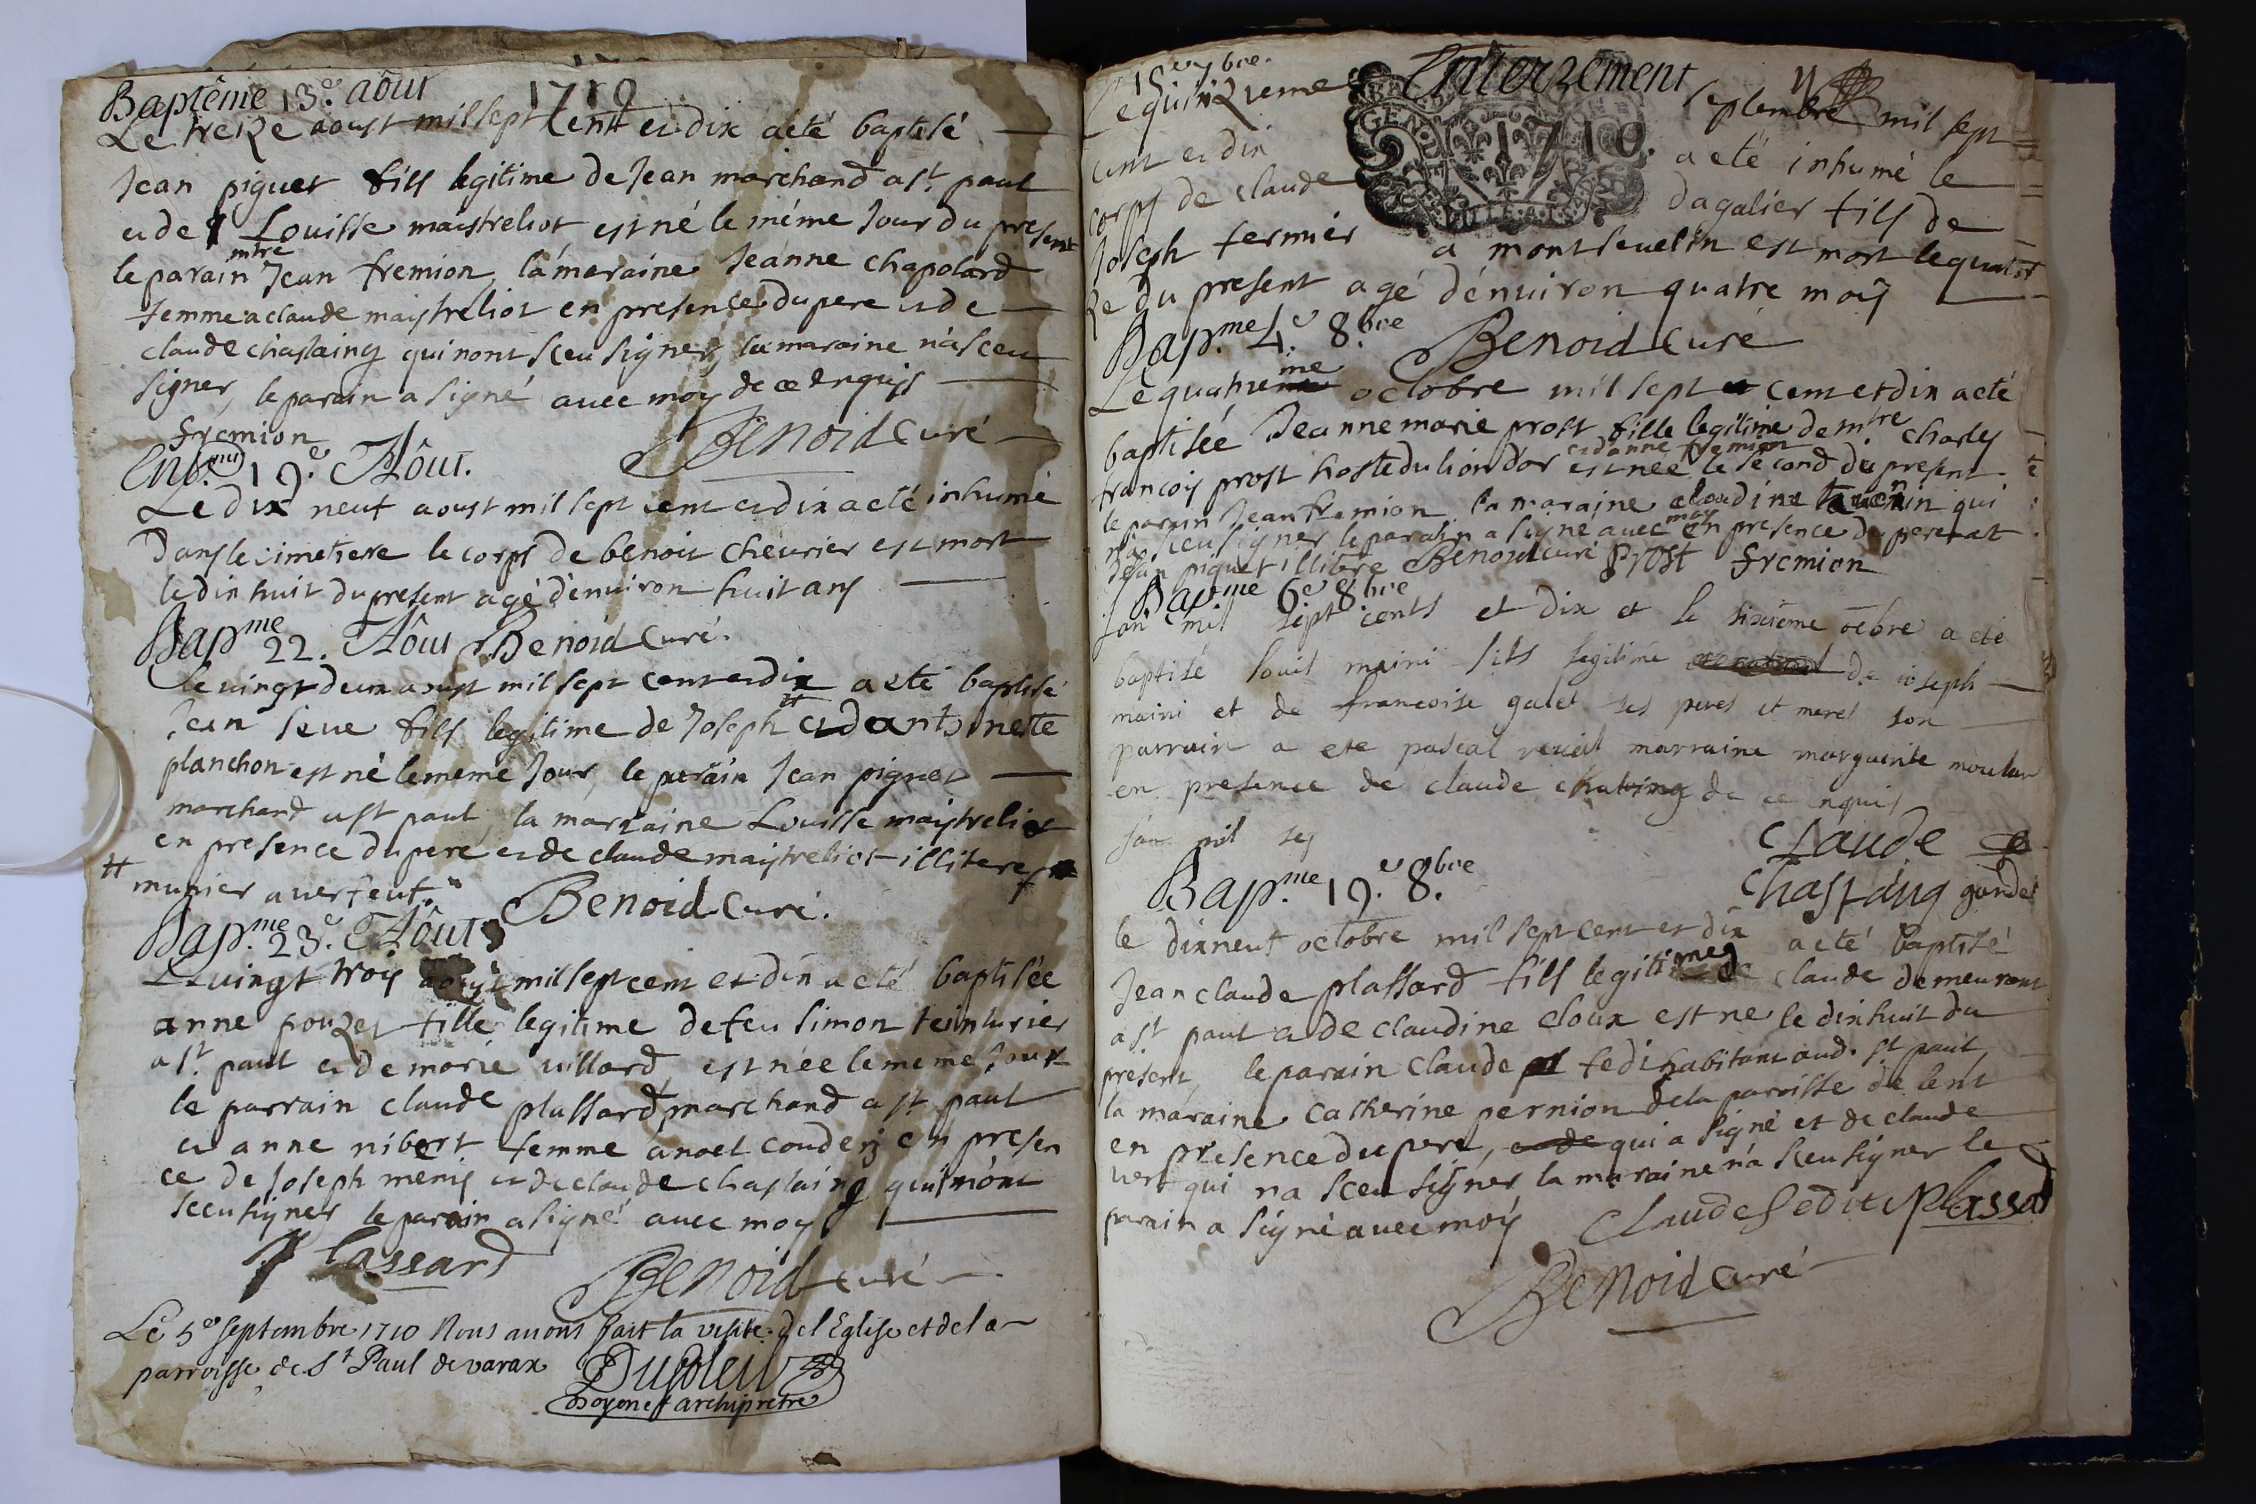 Baptême 13.e aôut 1710
Le treize aoust mil sept Cent et dix a eté baptisé
Jean piguet fils legitime de Jean marchand a st. paul
et de Louisse maistreliot est né le méme Jour du present
le parain mtre Jean fremion, la maraine Jeanne chapolard
femme a claude maistreliot en presence du pere et de
claude chastaing qui nont sceu signer, la maraine n'a sceu
signer, le parain a signé avec moy de ce enquis
fremion Benoid Curé
Ent.ment 19.e Aôut.
Le dix neuf aoust mil sept cent et dix a eté inhumé
dans le cimetiere le corps de benoit chevrier est mort
le dix huit du present agé d'enuiron huit ans
Bap.me 22. Aôut Benoid Curé.
le vingt deux aoust mil sept cent et dix a eté baptisé
Jean seve fils legitime de Joseph # et d'antoinette
planchon est né le meme Jour, le parain Jean piguet
marchand a st paul, la marraine Louisse maistreliot
en presence du pere et de claude maistreliot illiteres
# munier a verfeut.
Benoid Curé.
Bap.me 23.e Aôut
Le vingt trois mil sept cent et dix a eté baptisée
anne pouzet fille legitime de feu simon teinturier
a st. paul et de marie villard est née le meme Jour
le parrain claude plassard marchand a st paul
et anne nibert femme a noel couderj en presen
ce de Joseph menis et de claude chastaing qui n'ont
sceu signer le parain a signé avec moy
Plassard
Benoid curé
Le 5e septembre 1710 Nous auons fait la visite de l Eglise et de la
parroisse de St Paul de varax Dusoleil
Doyen et archiprêtre
15e 7bre. Enterrement
Le quinzieme septembre mil sept
cent et dix a eté inhumé le
corps de claude dagalier fils de
Joseph fermier a montseuelin est mort le quator
ze du present agé d'enuiron quatre mois
Bap.me 4.e 8.bre Benoid Curé
Le quatrieme octobre mil sept cent et dix a eté
baptisée Jeanne marie prost fille legitime de mtre charles
francois prost hoste du lion d'or et d'anne fremion est née le second du present
le parain Jean fremion la maraine claudine qui
n'a sceu signer le parain a signe avec moy en presence du pere et
Jean piguet illitere Benoid curé Prost fremion
Bap.me 6e 8bre
lan mil sept cents et dix et le sixième octobre a eté
baptisé louis maini fils legitime de ioseph
maini et de francoise galet ses peres et meres son
parrain a ete pascal marraine marguerite moulin
en presence de claude chataing de ce enquis
lan mil sep
Claude
Chastaing garde
Bap.me 19.e 8.bre
le dixneuf octobre mil sept cent et dix a eté baptisé
Jean claude plassard fils legitime de claude demeurant
a st. paul et de claudine cloux est ne le dixhuit du
present, le parain claude fedi habitant aud. st. paul
la maraine catherine pernion de la paroisse de lent
en presence du pere, qui a signé et de claude
vert qui n'a sceu signer la maraine n'a sceu signer le
parain a signé avec moy Claude fedit Plassard
Benoid Curé